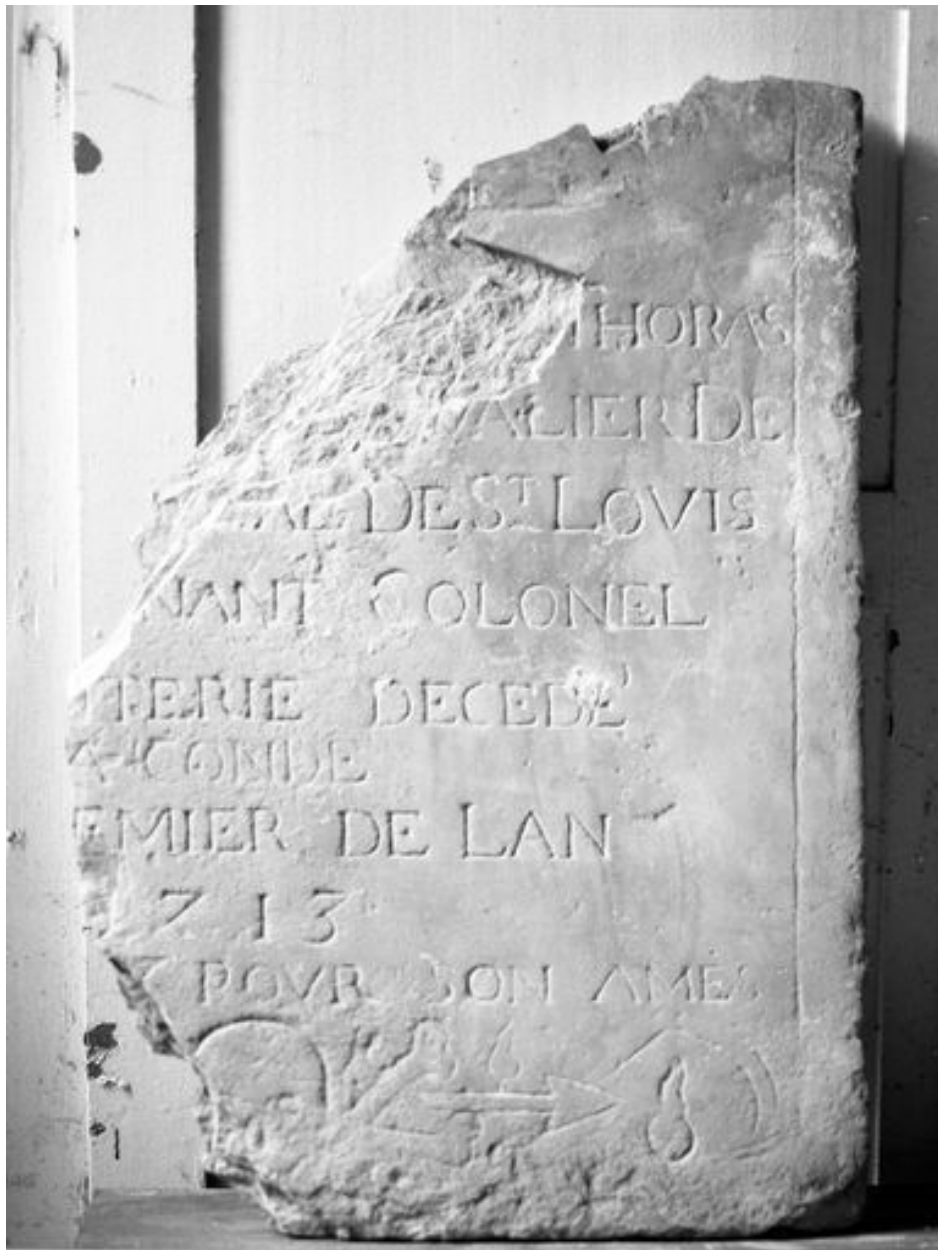 THORAS
VALIER DE
DE ST LOVIS
NANT COLONEL
TERIE DECEDÉ
A CONDE
EMIER DE LAN
713
POVR SON AME